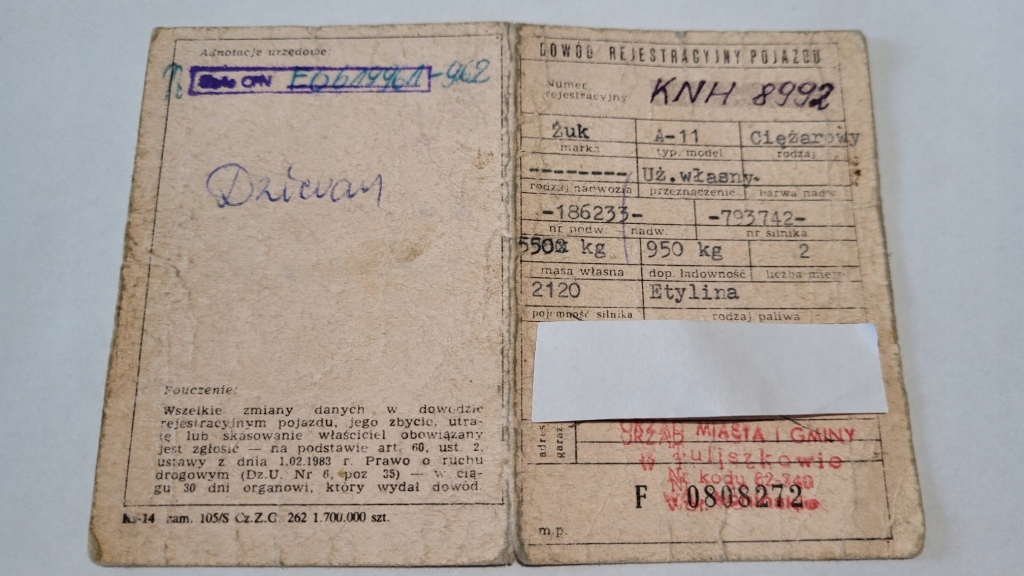 Adnotacje urzędowe:
CPN E0619961-962
Pouczenie:
Wszelkie zmiany danych w dowodzie
rejestracyjnym pojazdu, jego zbycie, utra-
tę lub skasowanie właściciel obowiązany
jest zgłosić — na podstawie art. 60, ust. 2,
ustawy z dnia 1.02.1983 r. Prawo o ruchu
drogowym (Dz.U. Nr 6, poz 35) — w cią-
gu 30 dni organowi, który wydał dowód.
Ks-14 zam. 105/S Cz.Z.G 262 1.700.000 szt.
DOWÓD REJESTRACYJNY POJAZDU
Numer
rejestracyjny KNH 8992
Żuk A-11 Ciężarowy
marka typ, model rodzaj
-------- Uż.własny.
rodzaj nadwozia przeznaczenie barwa nadw.
-186233- -793742-
nr podw. nadw. nr silnika
kg 950 kg 2
masa własna dop. ładowność liczba miejsc
2120 Etylina
pojemność silnika rodzaj paliwa
adres
garaż
URZĄD MIASTA I GMINY
w Tuliszkowie
Nr kodu 62-740
F 0808272
m.p.